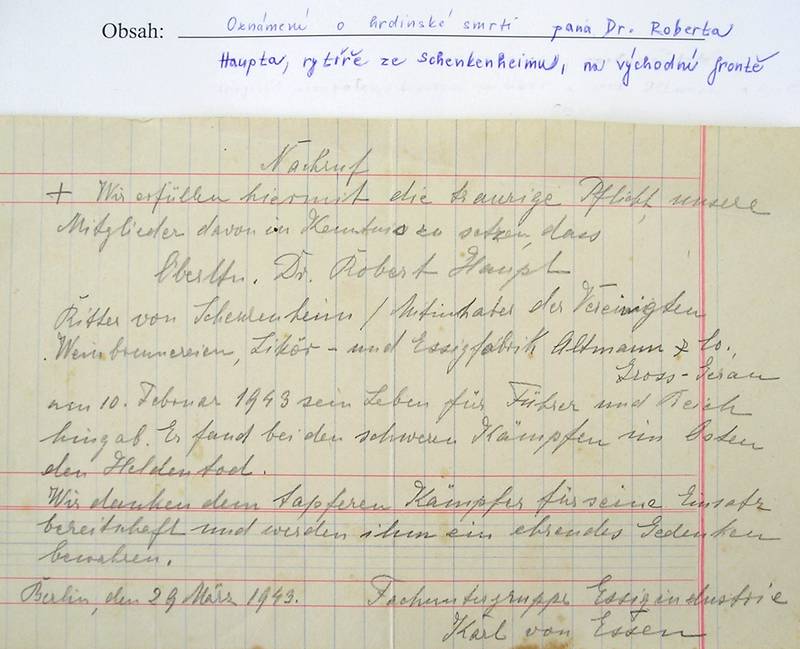 Obsah: Oznámení o hrdinské smrti pana Dr. Roberta
Haupta, rytíře ze Schenkenheimu, na východní frontě
Nachruf
+ Wir erfüllen hiermit die traurige Pflicht, unsere
Mitglieder davon in Kenntnis zu setzen, dass
Oberltn. Dr. Robert Haupt
Ritter von Schenkenheim / Mitinhaber der Vereinigten
Weinbrennereien, Likör- und Essigfabrik Altmann & Co.,
Gross-Gerau
am 10. Februar 1943 sein Leben für Führer und Reich
hingab. Er fand bei den schweren Kämpfen im Osten
den Heldentod.
Wir danken dem tapferen Kämpfer für seine Einsatz
bereitschaft und werden ihm ein ehrendes Gedenken
bewahren.
Berlin, den 29 März 1943. Fachuntergruppe Essigindustrie
Karl von Essen